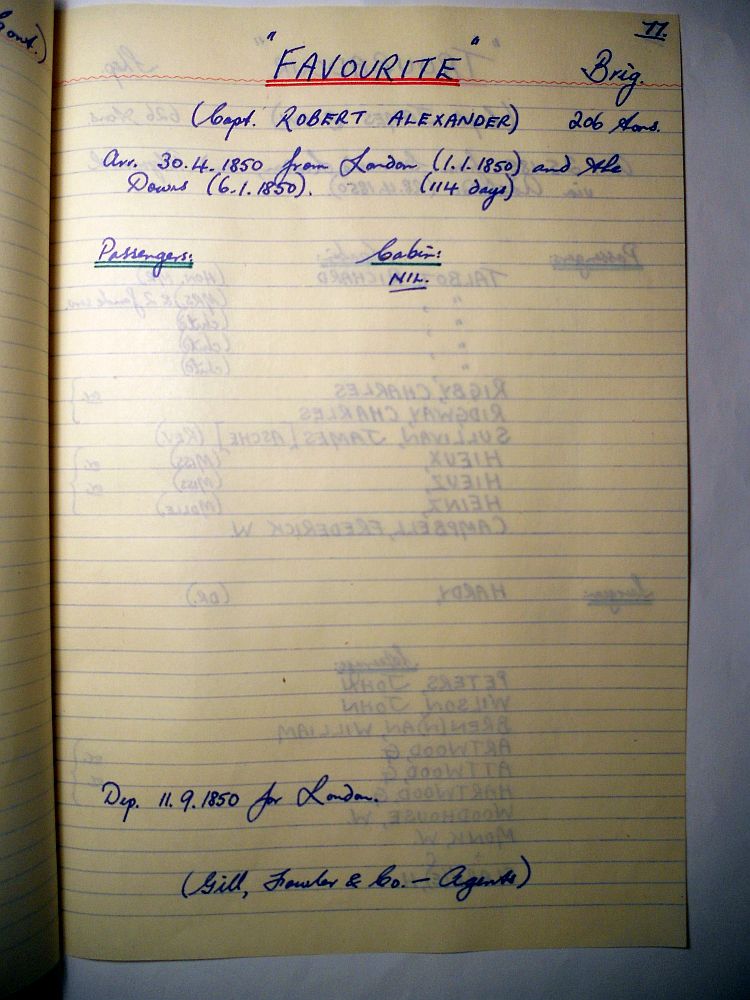 Cont.)
77.
"FAVOURITE" Brig.
(Capt. ROBERT ALEXANDER) 206 tons.
Arr. 30.4.1850 from London (1.1.1850) and the
Downs (6.1.1850). (114 days)
Passengers: Cabin:
NIL.
Dep. 11.9.1850 for London.
(Gill, Fowler & Co. — Agents)